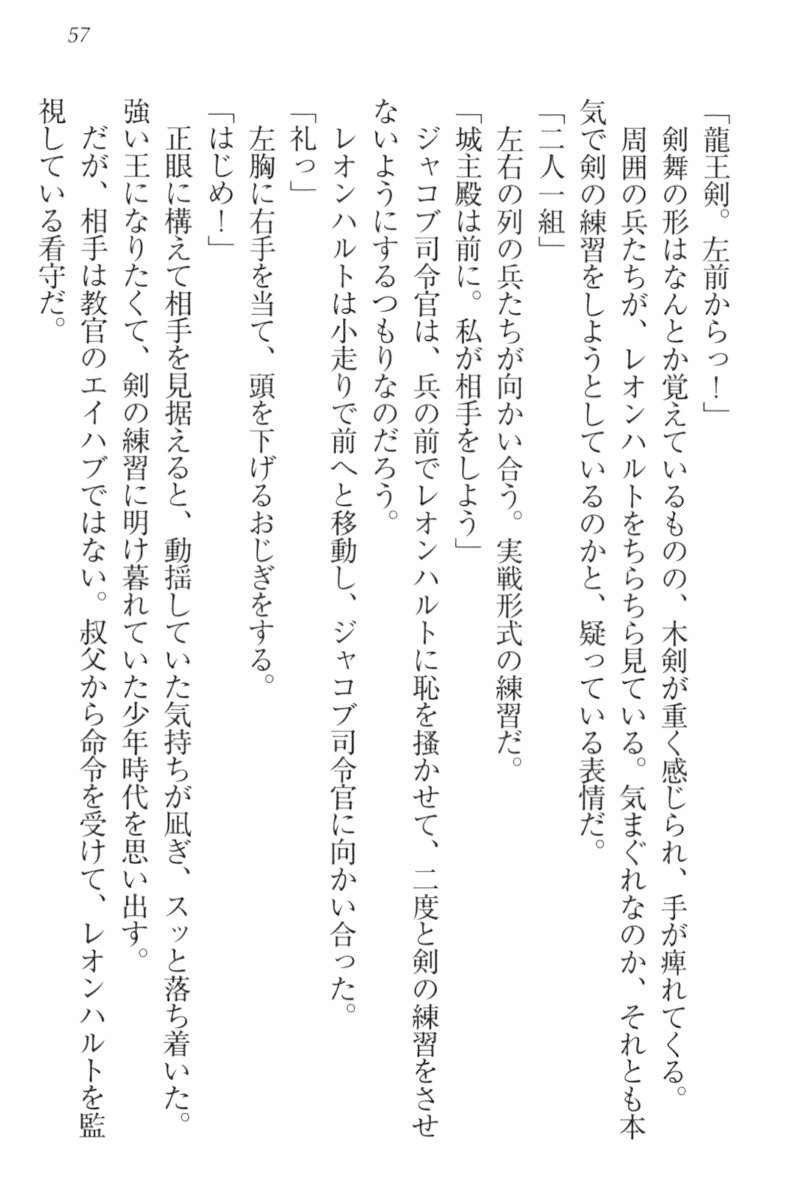 57
「龍王剣。左前からっ！」
剣舞の形はなんとか覚えているものの、木剣が重く感じられ、手が痺れてくる。
周囲の兵たちが、レオンハルトをちらちら見ている。気まぐれなのか、それとも本
気で剣の練習をしようとしているのかと、疑っている表情だ。
「二人一組」
左右の列の兵たちが向かい合う。実戦形式の練習だ。
「城主殿は前に。私が相手をしよう」
ジャコブ司令官は、兵の前でレオンハルトに恥を掻かせて、二度と剣の練習をさせ
ないようにするつもりなのだろう。
レオンハルトは小走りで前へと移動し、ジャコブ司令官に向かい合った。
「礼っ」
左胸に右手を当て、頭を下げるおじぎをする。
「はじめ！」
正眼に構えて相手を見据えると、動揺していた気持ちが凪ぎ、スッと落ち着いた。
強い王になりたくて、剣の練習に明け暮れていた少年時代を思い出す。
だが、相手は教官のエイハブではない。叔父から命令を受けて、レオンハルトを監
視している看守だ。